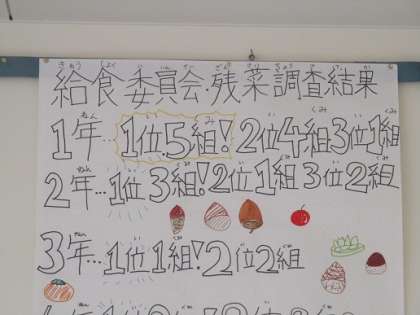 給食委員会・残菜調査結果
1年…1位5組!2位4組3位1組
2年…1位3組!2位1組3位2組
3年…1位1組!2位2組